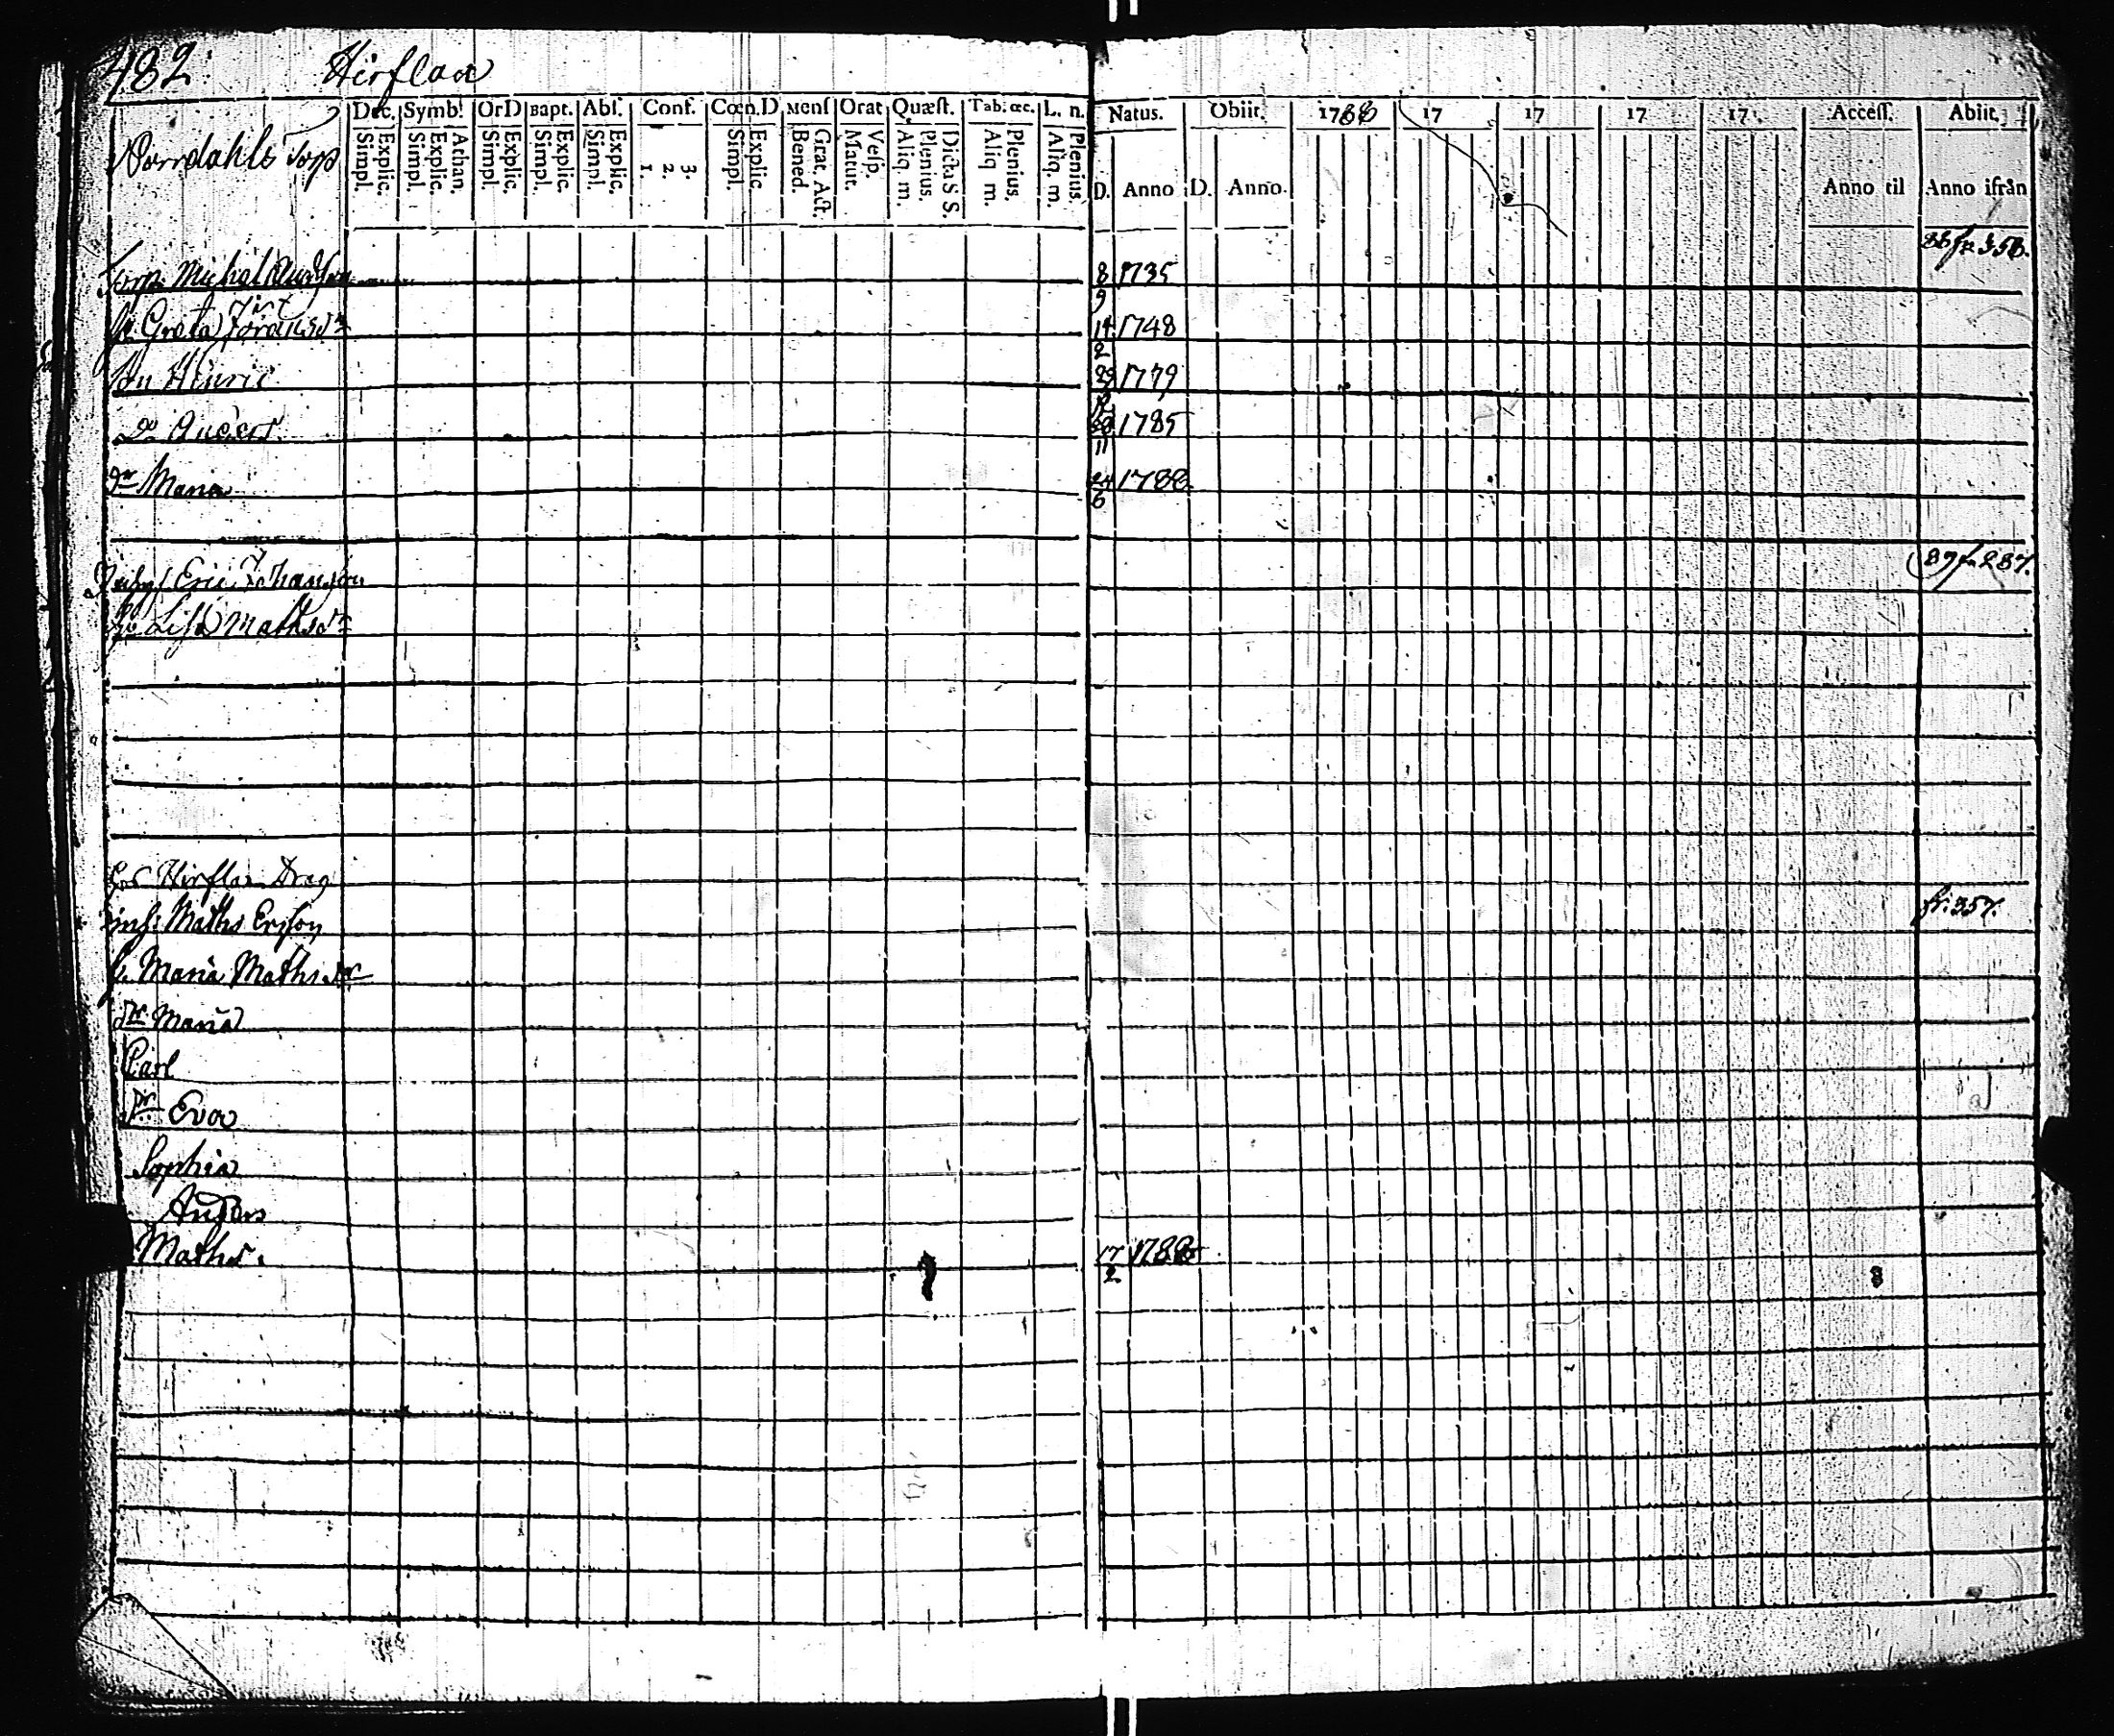 482 Hirflax
Dec. Symb. OrD Bapt. Abs. Conf. Cœn.D Mens Orat Quæst. Tab. œc. L. n. Natus. Obiit. 1788 17 17 17 17 Access. Abiit.
Norrdahls Torp Simpl. Explic. Simpl. Explic. Athan. Simpl. Explic. Simpl. Explic. Simpl. Explic. 1. 2. 3. Simpl. Explic. Bened. Grat. Act. Matut. Vesp. Aliq. m. Plenius. Dicta S S. Aliq m. Plenius. Aliq. m. Plenius. D. Anno D. Anno. Anno til Anno ifrån
88 fr. 358.
Torp. Michel 8/9 1735
h. Greta Jöransdr 14/2 1748
son Hinric 29/12 1779
Do Anders 30/11 1785
dr Maria 24/6 1788
Eric Johanson 89 fr 287.
h. Lisa Mathsdr
Hirflax Drag
inh: Maths Erson fr. 357.
h. Maria Mathsdr
dr Maria
Carl
dr Eva
Sophia
Anders
Maths. 17/2